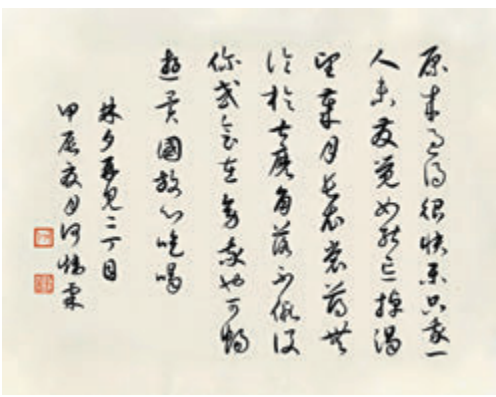 原來過得很快樂只我一
人未發覺如能忘掉渴
望歲月長衣裳薄無
論於甚麼角落不假設
你或會在旁我也可暢
遊異國放心吃喝
林夕再見二丁目
甲辰夏月何